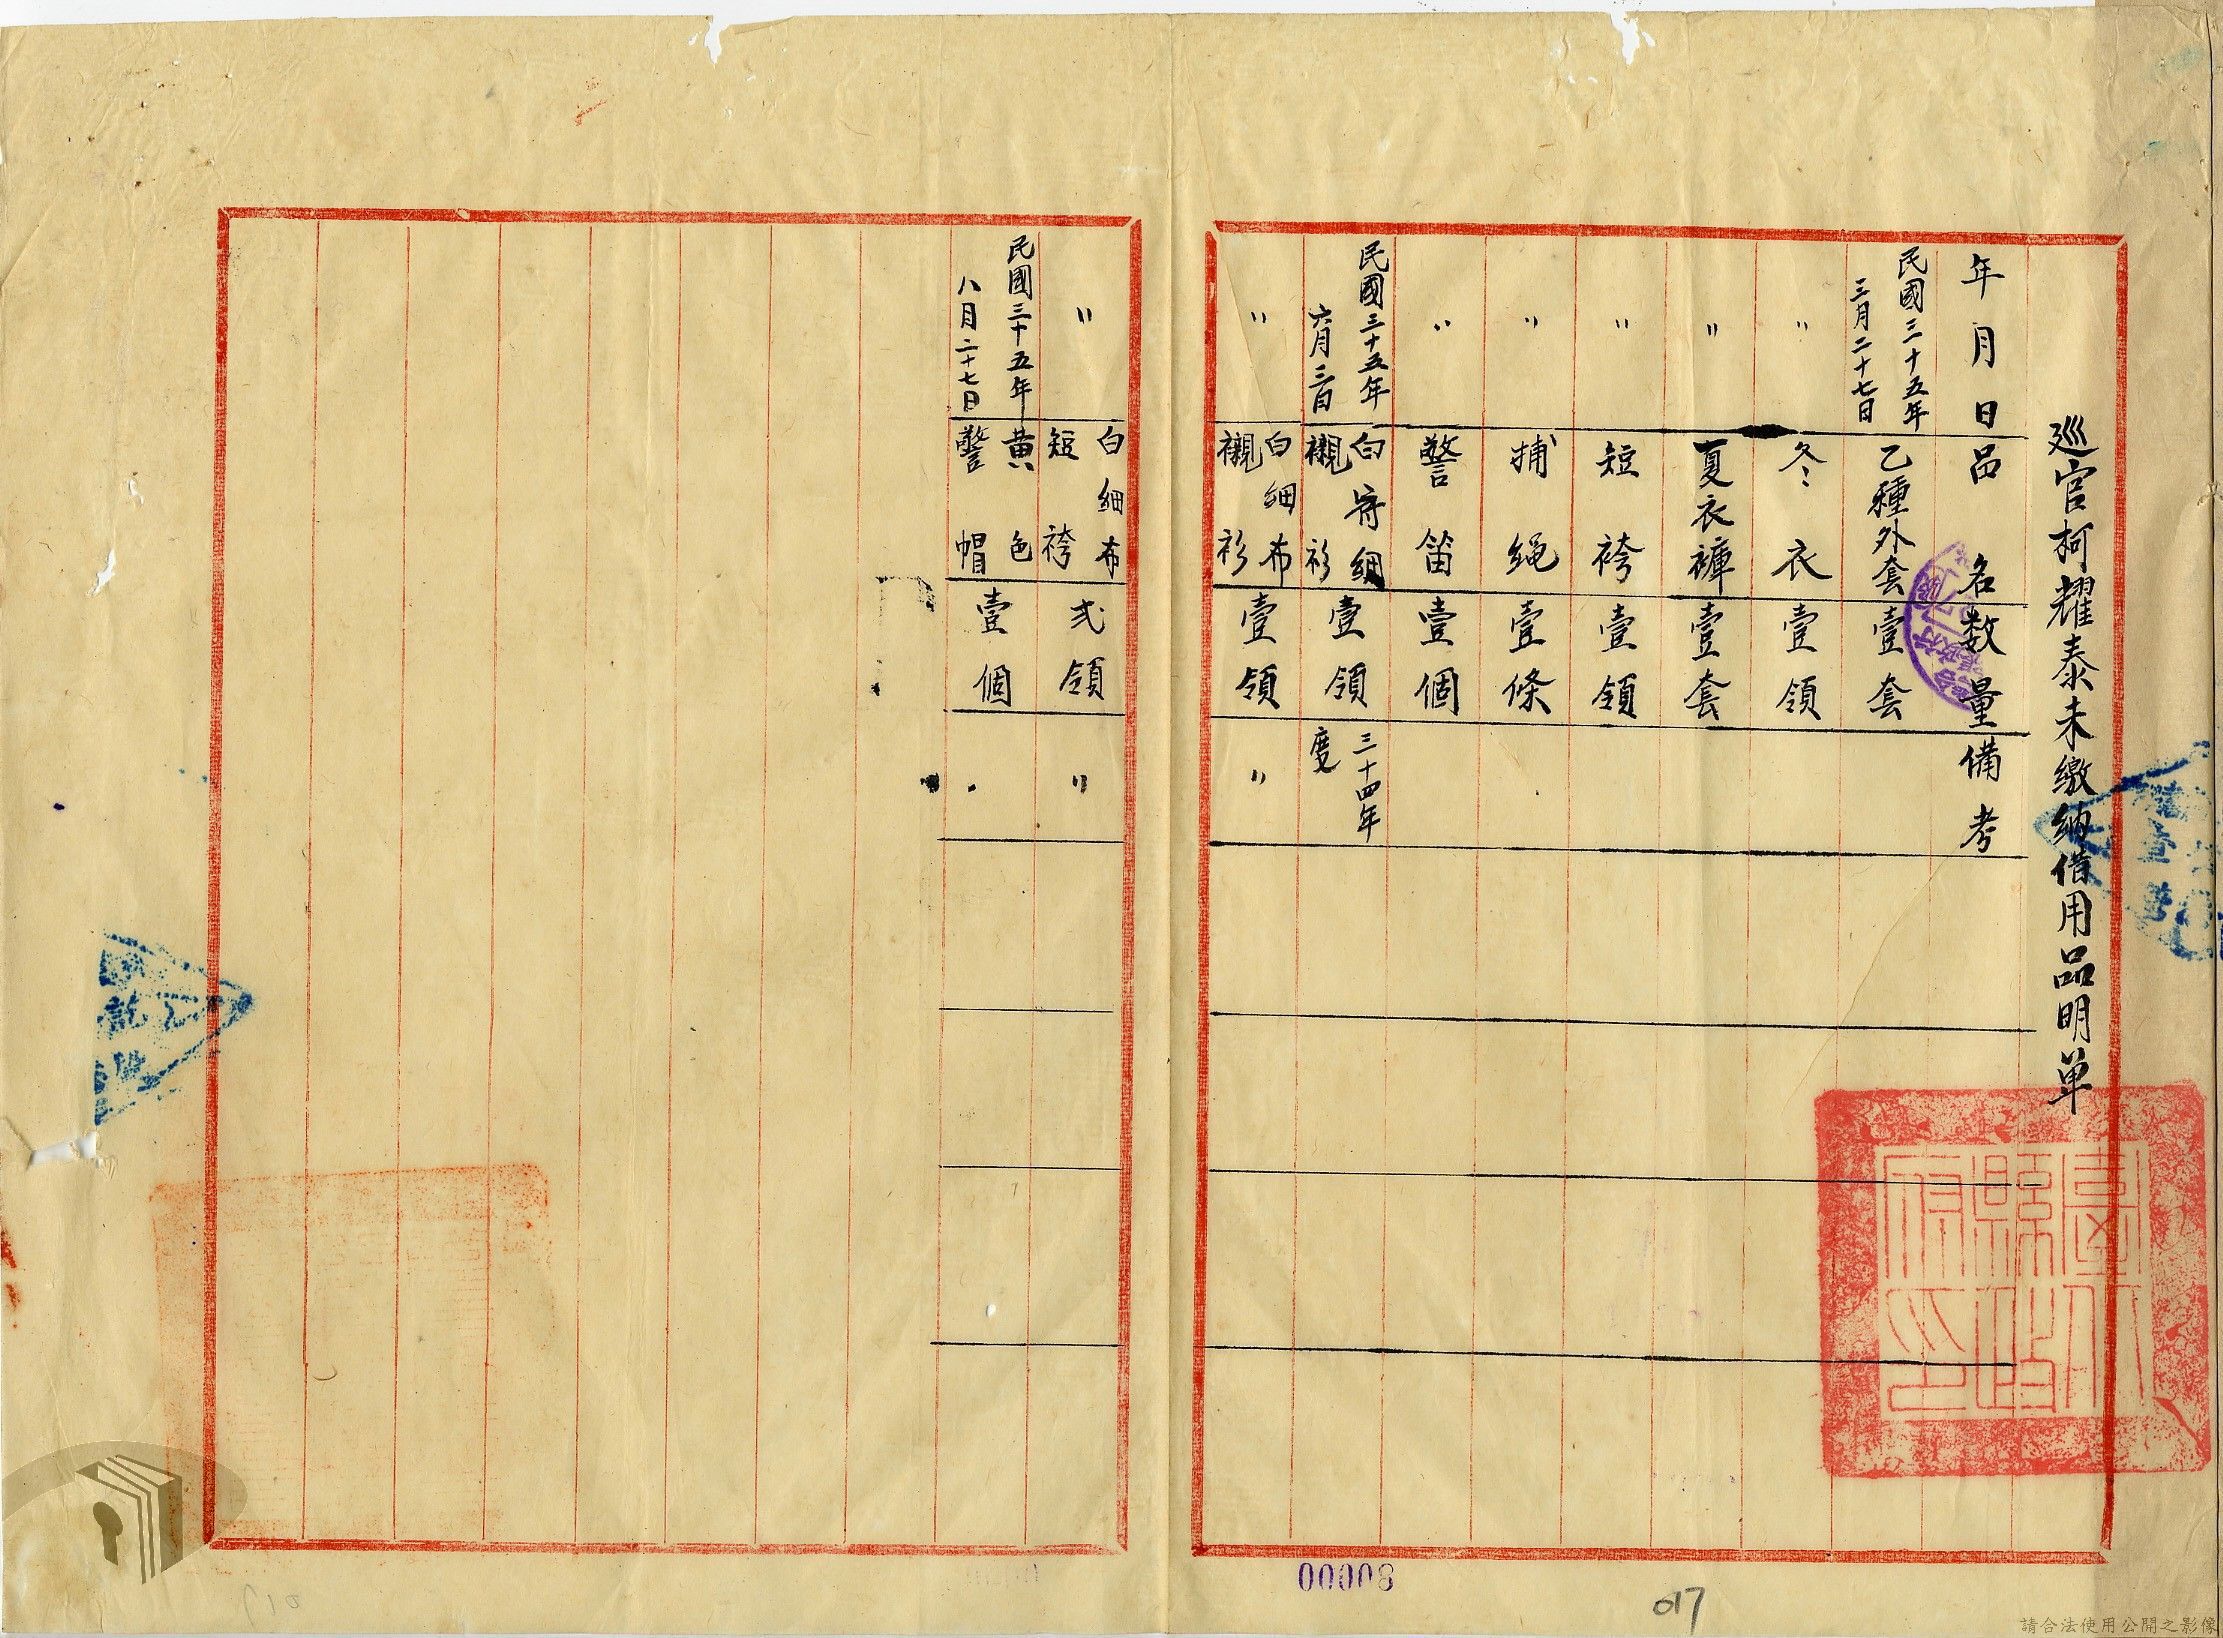 巡官柯耀泰未繳納借用品明單
年月日 品名 數量 備考
民國三十五年三月二十七日 乙種外套 壹套
〃 冬衣 壹領
〃 夏衣褲 壹套
〃 短袴 壹領
〃 捕繩 壹條
〃 警笛 壹個
民國三十五年六月三日 白 細 襯衫 壹領 三十四年度
〃 白細布襯衫 壹領 〃
〃 白細布短袴 弍領 〃
民國三十五年八月二十七日 黃色警帽 壹個
00008
017
請合法使用公開之影像